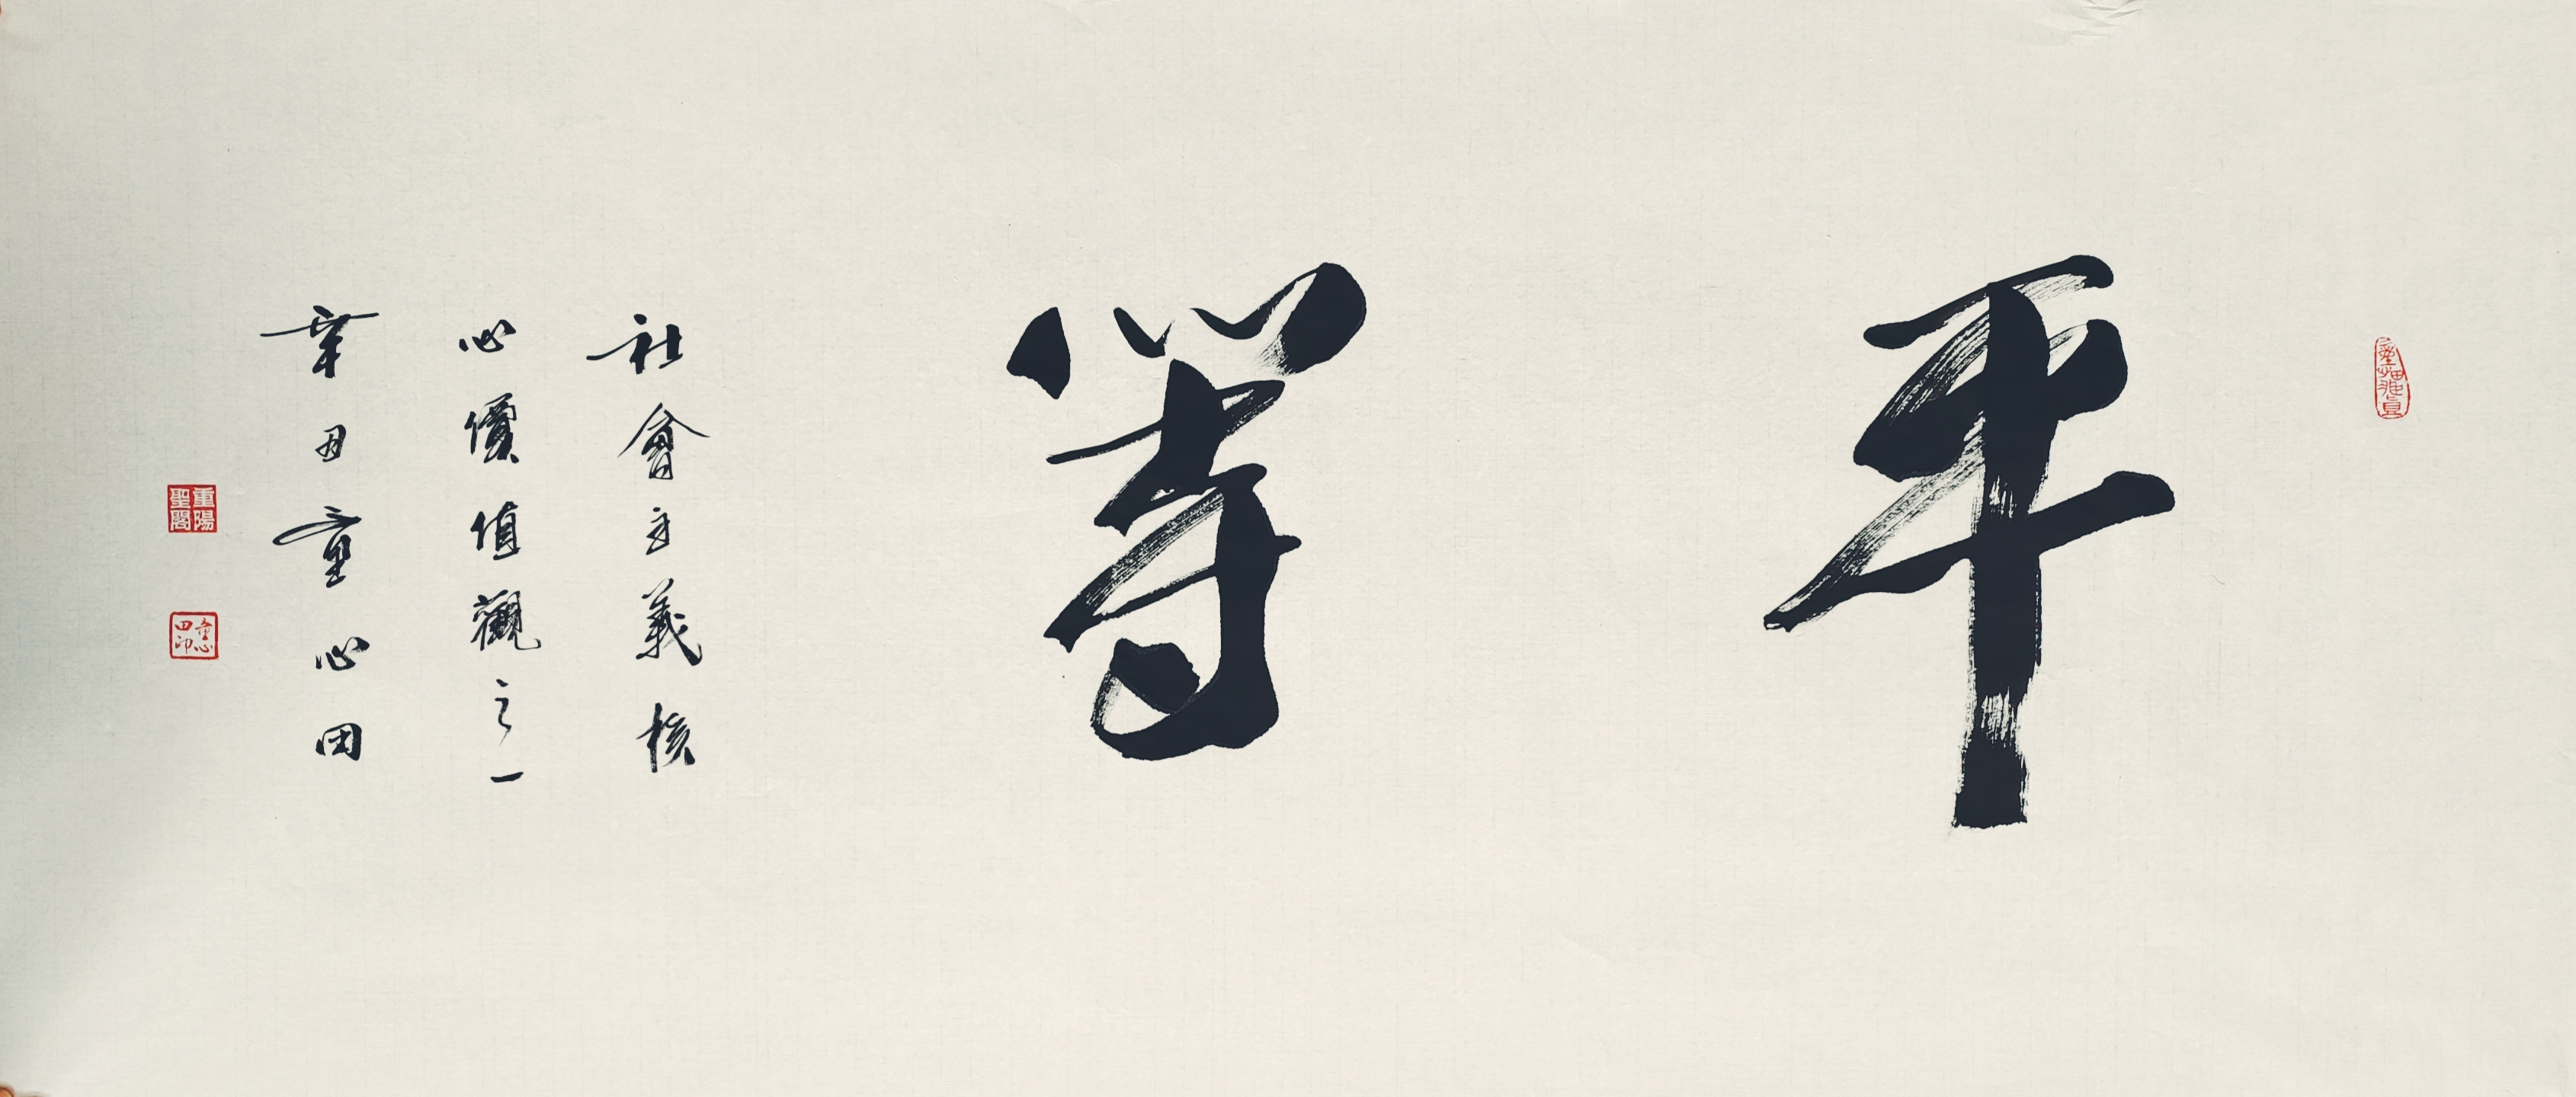 平等
社會主義核
心價值觀之一
辛丑童心田
重陽
聖閣
童心
田印